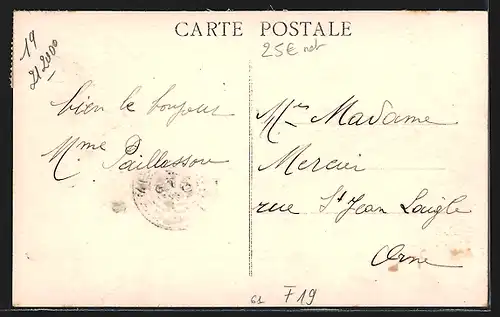 CARTE POSTALE
25€ net
19
21.2000
bien le bonjour
Mme Paillasson
Madame
Mercier
rue St Jean Laigle
Orne
61 F19